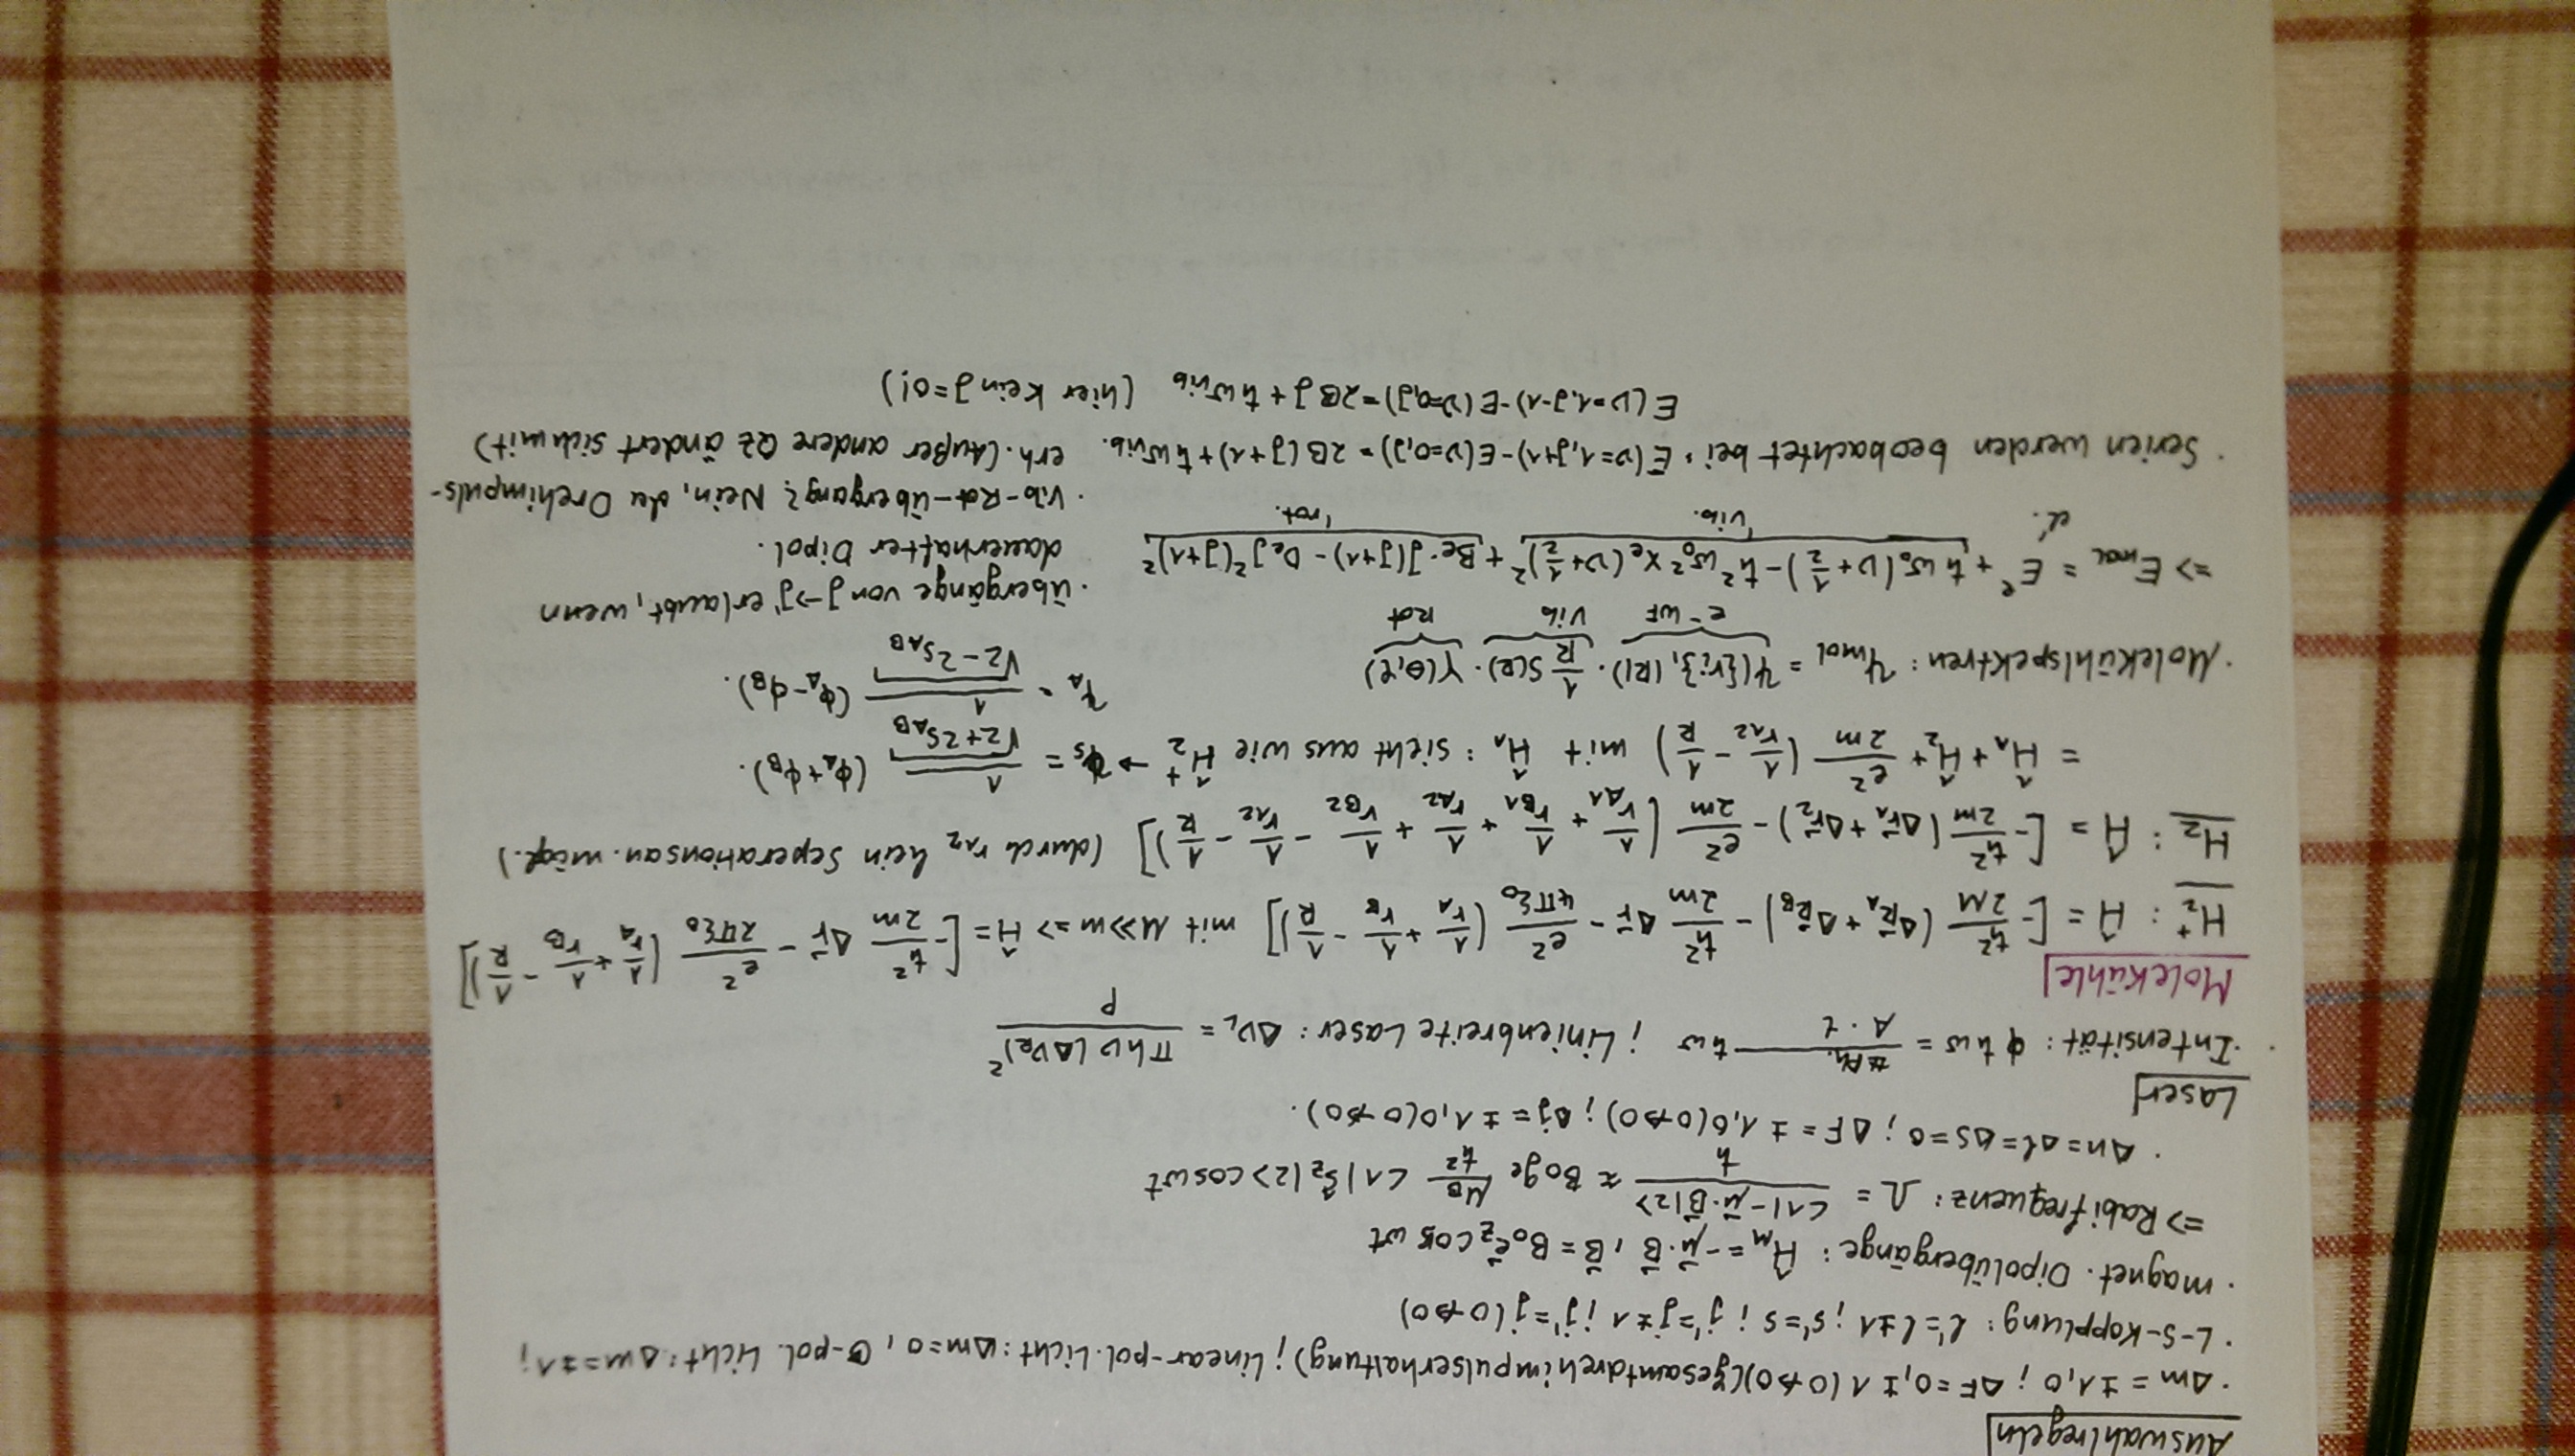 Auswahlregeln
· Δm = ±1,0 ; ΔF=0,±1 (0↛0)(gesamtdrehimpulserhaltung) ; linear-pol. Licht: Δm=0, σ-pol. Licht: Δm=±1;
· L-S-Kopplung: l'=l±1 ; s'=s ; j'=j±1 ; j'=j (0↛0)
· magnet. Dipolübergänge: Ĥ_M = -μ⃗·B⃗ , B⃗ = B₀ e⃗_z cos ωt
=> Rabifrequenz: Ω = <1|-μ⃗·B⃗|2>/ħ ≈ B₀ge μ_B/ħ² <1|Ŝ_z|2> cosωt
· Δn=Δl=ΔS=0 ; ΔF = ±1,0(0↛0) ; Δj=±1,0(0↛0).
Laser
· Intensität: ϕħω = #Ph./(A·t) ħω ; Linienbreite Laser: Δν_L = πhν(Δν_R)²/P
Moleküle
H₂⁺: Ĥ = [-ħ²/2M (Δ_R⃗A + Δ_R⃗B) - ħ²/2m Δ_r⃗ - e²/4πε₀ (1/r_A + 1/r_B - 1/R)] mit M>>m => Ĥ = [-ħ²/2m Δ_r⃗ - e²/2πε₀ (1/r_A + 1/r_B - 1/R)]
H₂: Ĥ = [-ħ²/2m (Δ_r⃗1 + Δ_r⃗2) - e²/2m (1/r_A1 + 1/r_B1 + 1/r_A2 + 1/r_B2 - 1/r_12 - 1/R)] (durch r₁₂ kein Seperationsan. mögl.)
= Ĥ₁+Ĥ₂+ e²/2m (1/r₁₂ - 1/R) mit Ĥ₁ : sieht aus wie Ĥ₂⁺ → ψ_S = 1/√(2+2S_AB) (ϕ_A+ϕ_B).
ψ_A = 1/√(2-2S_AB) (ϕ_A-ϕ_B).
· Molekühlspektren: Ψ_mol = Ψ({r_i},|R|) · 1/R S(R) · Y(θ,φ)
e⁻WF Vib Rot
· Übergänge von J→J' erlaubt, wenn
dauerhafter Dipol.
=> E_mol = E^e + ħω₀(ν+1/2) - ħ²ω₀²x_e(ν+1/2)² + B_e·J(J+1) - D_e J²(J+1)²
el. Vib. rot.
· Vib-Rot-Übergang? Nein, da Drehimpuls-
erh. (Außer andere QZ ändert sich mit)
· Serien werden beobachtet bei: E(ν=1,J+1)-E(ν=0,J) = 2B(J+1)+ħω_vib.
E(ν=1,J-1)-E(ν=0,J)=-2BJ+ħω_vib (hier kein J=0!)